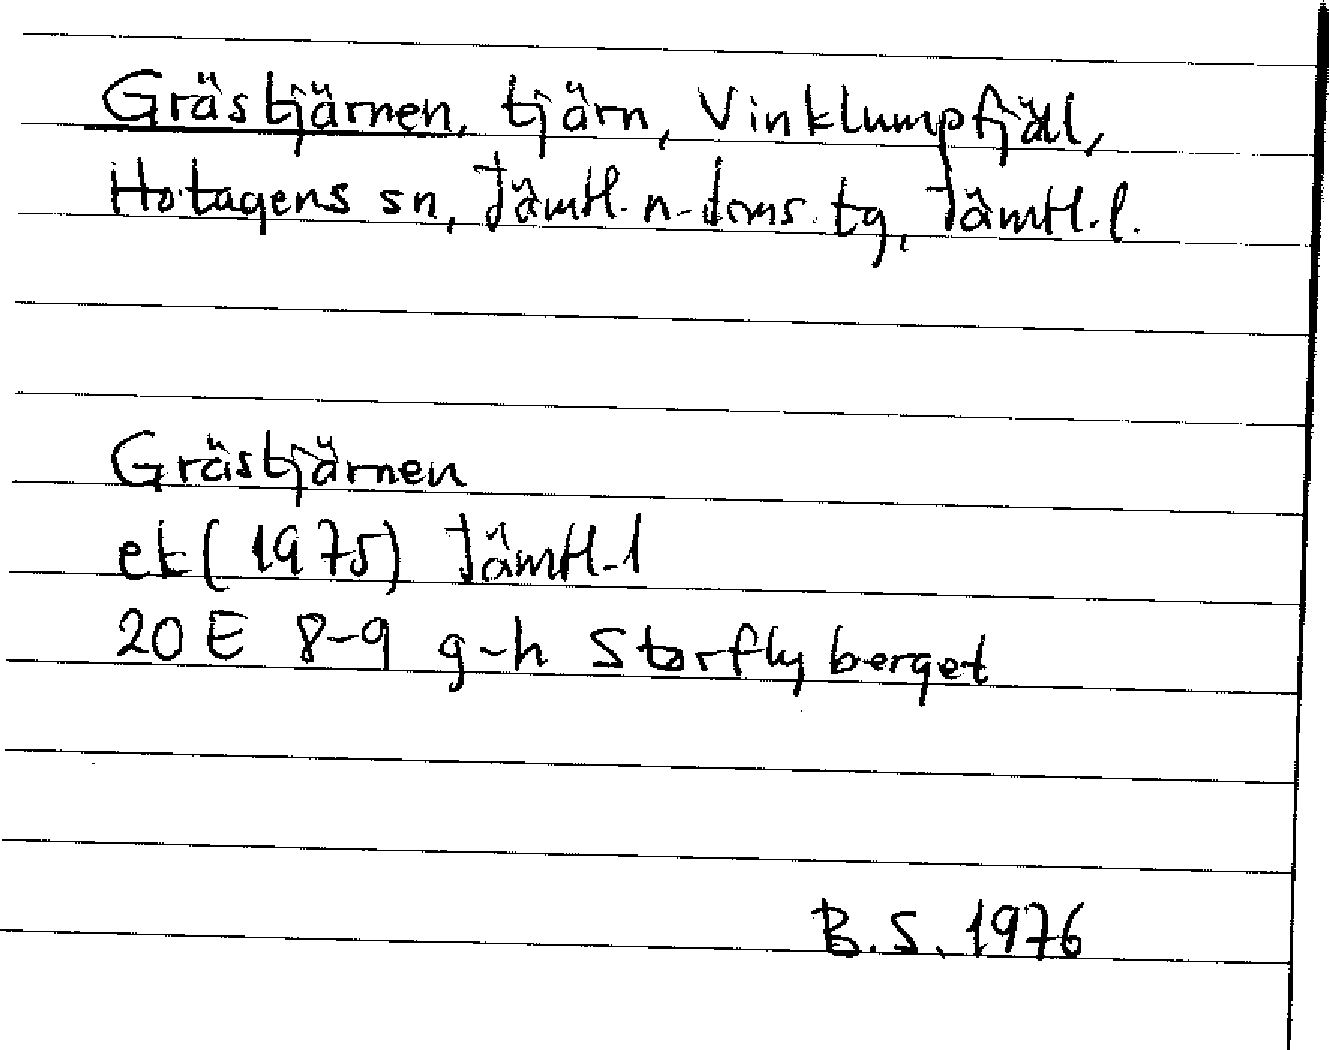 Grästjärnen, tjärn, Vinklumpfjäll,
Hotagens sn, Jämtl. n. doms. tg, Jämtl. l.
Grästjärnen
ek (1975) Jämtl. l
20 E 8-9 g-h Storflyberget
B.S. 1976